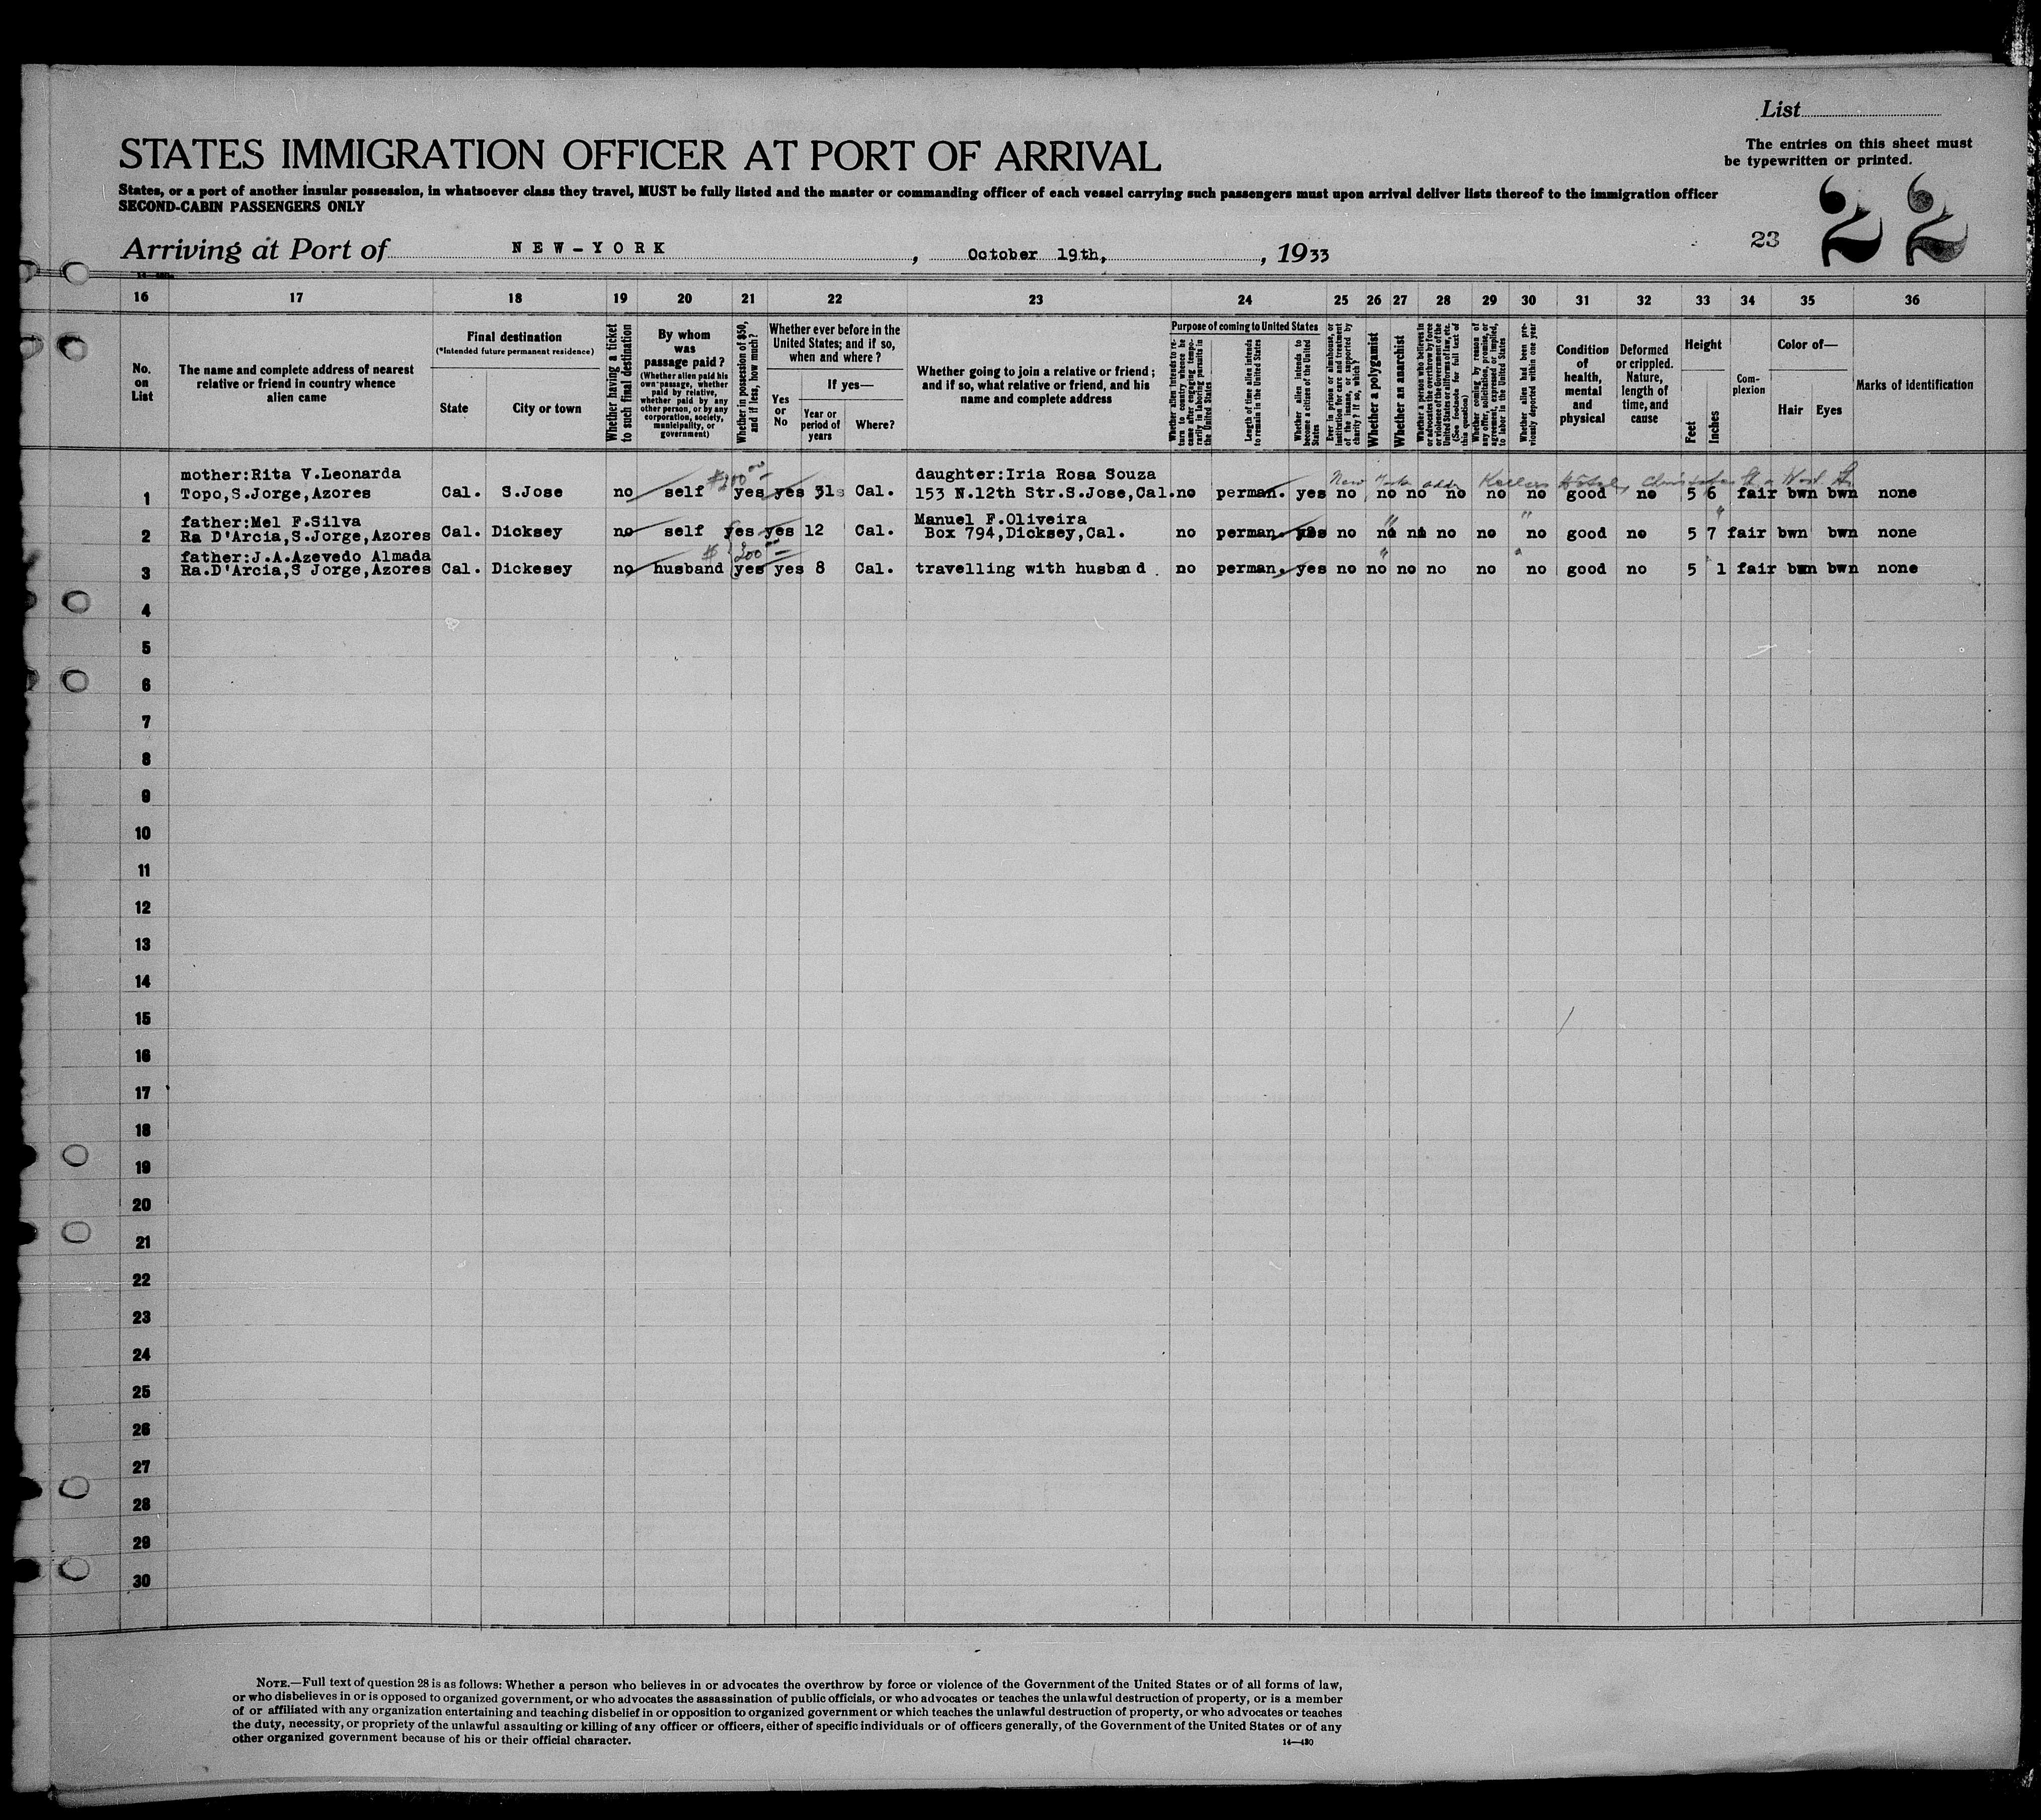 List
The entries on this sheet must
be typewritten or printed.
STATES IMMIGRATION OFFICER AT PORT OF ARRIVAL
States, or a port of another insular possession, in whatsoever class they travel, MUST be fully listed and the master or commanding officer of each vessel carrying such passengers must upon arrival deliver lists thereof to the immigration officer
SECOND-CABIN PASSENGERS ONLY
23 22
Arriving at Port of NEW-YORK, October 19th, 1933
16 17 18 19 20 21 22 23 24 25 26 27 28 29 30 31 32 33 34 35 36
No.
on
List
The name and complete address of nearest
relative or friend in country whence
alien came
Final destination
(*Intended future permanent residence)
State
City or town
Whether having a ticket
to such final destination
By whom
was
passage paid?
(Whether alien paid his
own passage, whether
paid by relative,
whether paid by any
other person, or by any
corporation, society,
municipality, or
government)
Whether in possession of $50,
and if less, how much?
Whether ever before in the
United States; and if so,
when and where?
Yes
or
No
If yes—
Year or
period of
years
Where?
Whether going to join a relative or friend;
and if so, what relative or friend, and his
name and complete address
Purpose of coming to United States
Whether alien intends to re-
turn to country whence he
came after engaging tempo-
rarily in laboring pursuits in
the United States
Length of time alien intends
to remain in the United States
Whether alien intends to
become a citizen of the United
States
Ever in prison or almshouse, or
institution for care and treatment
of the insane, or supported by
charity? If so, which?
Whether a polygamist
Whether an anarchist
Whether a person who believes in
or advocates the overthrow by force
or violence of the Government of the
United States or all forms of law, etc.
(See footnote for full text of
this question)
Whether coming by reason of
any offer, solicitation, promise, or
agreement, expressed or implied,
to labor in the United States
Whether alien had been pre-
viously deported within one year
Condition
of
health,
mental
and
physical
Deformed
or crippled.
Nature,
length of
time, and
cause
Height
Feet
Inches
Com-
plexion
Color of—
Hair
Eyes
Marks of identification
mother:Rita V.Leonarda $200 00 daughter:Iria Rosa Souza New York addr Hotel
1 Topo,S.Jorge,Azores Cal. S.Jose no self yes yes 31s Cal. 153 N.12th Str.S.Jose,Cal. no perman. yes no no no no no no good no 5 6 fair bwn bwn none
father:Mel F.Silva Manuel F.Oliveira " "
2 Ra D'Arcia,S.Jorge,Azores Cal. Dicksey no self yes yes 12 Cal. Box 794,Dicksey,Cal. no perman. yes no no no no no no good no 5 7 fair bwn bwn none
father:J.A.Azevedo Almada $ 200 00 " "
3 Ra.D'Arcia,S Jorge,Azores Cal. Dickesey no husband yes yes 8 Cal. travelling with husband . no perman. yes no no no no no no good no 5 1 fair bwn bwn none
4
5
6
7
8
9
10
11
12
13
14
15
16
17
18
19
20
21
22
23
24
25
26
27
28
29
30
NOTE.—Full text of question 28 is as follows: Whether a person who believes in or advocates the overthrow by force or violence of the Government of the United States or of all forms of law,
or who disbelieves in or is opposed to organized government, or who advocates the assassination of public officials, or who advocates or teaches the unlawful destruction of property, or is a member
of or affiliated with any organization entertaining and teaching disbelief in or opposition to organized government or which teaches the unlawful destruction of property, or who advocates or teaches
the duty, necessity, or propriety of the unlawful assaulting or killing of any officer or officers, either of specific individuals or of officers generally, of the Government of the United States or of any
other organized government because of his or their official character.
14—430